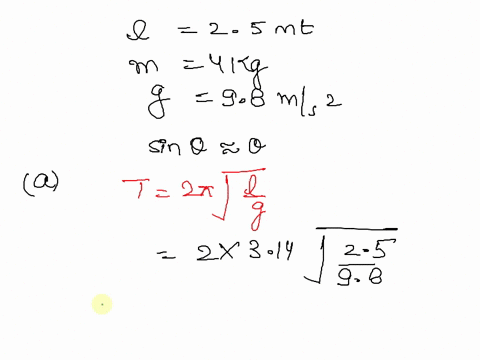 l = 2.5 mt
m = 4 Kg
g = 9.8 m/s 2
sin θ ≈ θ
(a) T = 2π √(l/g)
= 2 × 3.14 √(2.5/9.8)